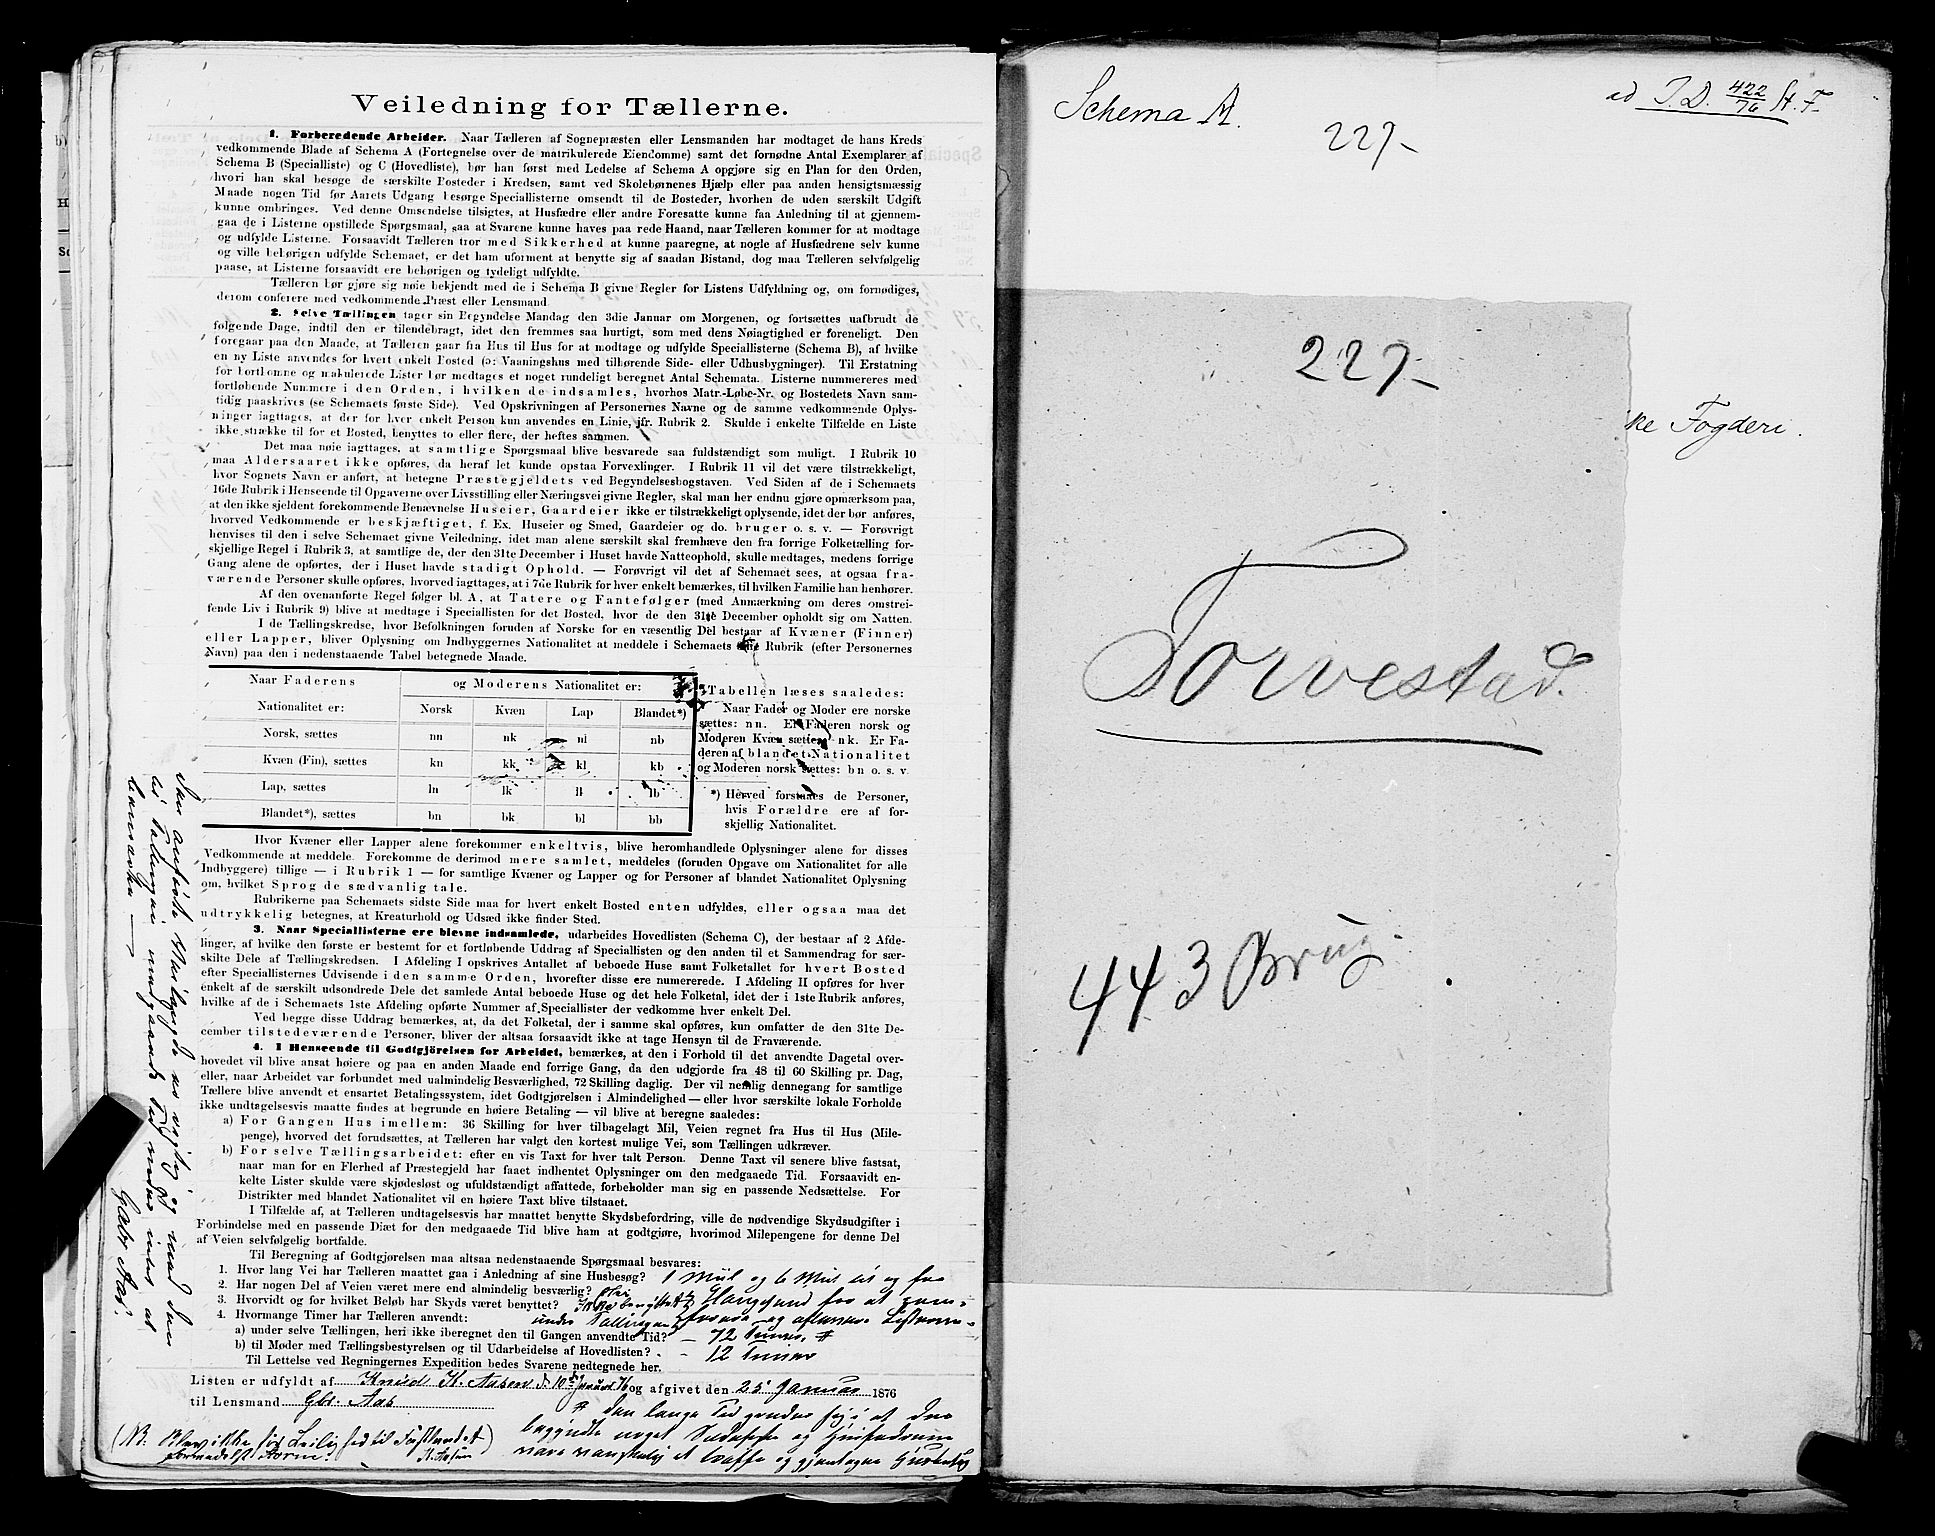 Veiledning for Tællerne.
1. Forberedende Arbeider. Naar Tælleren af Sognepræsten eller Lensmanden har modtaget de hans Kreds
vedkommende Blade af Schema A (Fortegnelse over de matrikulerede Eiendomme) samt det fornødne Antal Exemplarer af
Schema B (Specialliste) og C (Hovedliste), bør han først med Ledelse af Schema A opgjøre sig en Plan for den Orden,
hvori han skal besøge de særskilte Bosteder i Kredsen, samt ved Skolebørnenes Hjælp eller paa anden hensigtsmæssig
Maade nogen Tid før Aarets Udgang besørge Speciallisterne omsendt til de Bosteder, hvorhen de uden særskilt Udgift
kunne ombringes. Ved denne Omsendelse tilsigtes, at Husfædre eller andre Foresatte kunne faa Anledning til at gjennem-
gaa de i Listerne opstillede Spørgsmaal, saa at Svarene kunne haves paa rede Haand, naar Tælleren kommer for at modtage
og udfylde Listerne. Forsaavidt Tælleren tror med Sikkerhed at kunne paaregne, at nogle af Husfædrene selv kunne
og ville behørigen udfylde Schemaet, er det ham uforment at benytte sig af saadan Bistand, dog maa Tælleren selvfølgelig
paase, at Listerne forsaavidt ere behørigen og tydeligt udfyldte.
Tælleren bør gjøre sig nøie bekjendt med de i Schema B givne Regler for Listens Udfyldning og, om fornødiges,
derom conferere med vedkommende Præst eller Lensmand
2. Selve Tællingen tager sin Begyndelse Mandag den 3die Januar om Morgenen, og fortsættes uafbrudt de
følgende Dage, indtil den er tilendebragt, idet den fremmes saa hurtigt, som med dens Nøiagtighed er foreneligt. Den
foregaar paa den Maade, at Tælleren gaar fra Hus til Hus for at modtage og udfylde Speciallisterne (Schema B), af hvilke
en ny Liste anvendes for hvert enkelt Bosted (ɔ: Vaaningshus med tilhørende Side- eller Udhusbygninger). Til Erstatning
for bortkomne og makulerede Lister bør medtages et noget rundeligt beregnet Antal Schemata. Listerne nummereres med
fortløbende Nummere i den Orden, i hvilken de indsamles, hvorhos Matr.-Løbe-Nr. og Bostedets Navn sam-
tidig paaskrives (se Schemaets første Side). Ved Opskrivningen af Personernes Navne og de samme vedkommende Oplys-
ninger iagttages, at der for hver enkelt Person kun anvendes en Linie, jfr. Rubrik 2. Skulde i enkelte Tilfælde en Liste
ikke strække til for et Bosted, benyttes to eller flere, der heftes sammen.
Det maa nøie iagttages, at samtlige Spørgsmaal blive besvarede saa fuldstændigt som muligt. I Rubrik 10
maa Aldersaaret ikke opføres, da heraf let kunde opstaa Forvexlinger. I Rubrik 11 vil det være tilstrækkeligt,
hvor Sognets Navn er anført, at betegne Præstegjeldets ved Begyndelsesbogstaven. Ved Siden af de i Schemaets
16de Rubrik i Henseende til Opgaverne over Livsstilling eller Næringsvei givne Regler, skal man her endnu gjøre opmærksom paa,
at den ikke sjeldent forekommende Benævnelse Huseier, Gaardeier ikke er tilstrækkeligt oplysende, idet der bør anføres,
hvorved Vedkommende er beskjæftiget, f. Ex. Huseier og Smed, Gaardeier og do. bruger o. s. v. — Forøvrigt
henvises til den i selve Schemaet givne Veiledning, idet man alene særskilt skal fremhæve den fra forrige Folketælling for-
skjellige Regel i Rubrik 3, at samtlige de, der den 31te December i Huset havde Natteophold, skulle medtages, medens forrige
Gang alene de opførtes, der i Huset havde stadigt Ophold. — Forøvrigt vil det af Schemaet sees, at ogsaa fra-
værende Personer skulle opføres, hvorved iagttages, at i 7de Rubrik for hver enkelt bemærkes, til hvilken Familie han henhører.
Af den ovenanførte Regel følger bl. A, at Tatere og Fantefølger (med Anmærkning om deres omstrei-
fende Liv i Rubrik 9) blive at medtage i Speciallisten for det Bosted, hvor de den 31te December opholdt sig om Natten.
I de Tællingskredse, hvor Befolkningen foruden af Norske for en væsentlig Del bestaar af Kvæner (Finner)
eller Lapper, bliver Oplysning om Indbyggernes Nationalitet at meddele i Schemaets Rubrik (efter Personernes
Navn) paa den i nedenstaaende Tabel betegnede Maade.
Naar Faderens og Moderens Nationalitet er:
Nationalitet er: Norsk Kvæn Lap Blandet*)
Norsk, sættes nn nk nl nb
Kvæn (Fin), sættes kn kk kl kb
Lap, sættes ln lk ll lb
Blandet*), sættes bn bk bl bb
Tabellen læses saaledes:
Naar Fader og Moder ere norske
sættes: nn. Er Faderen norsk og
Moderen Kvæn sættes nk. Er Fa-
deren af blandet Nationalitet
og Moderen norsk sættes: bn o. s. v.
*) Herved forstaaes de Personer,
hvis Forældre ere af for-
skjellig Nationalitet.
Hvor Kvæner eller Lapper alene forekommer enkeltvis, blive heromhandlede Oplysninger alene for disses
Vedkommende at meddele. Forekomme de derimod mere samlet, meddeles (foruden Opgave om Nationalitet for alle
Indbyggere) tillige — i Rubrik 1 — for samtlige Kvæner og Lapper og for Personer af blandet Nationalitet Oplysning
om, hvilket Sprog de sædvanlig tale.
Rubrikerne paa Schemaets sidste Side maa for hvert enkelt Bosted enten udfyldes, eller ogsaa maa det
udtrykkelig betegnes, at Kreaturhold og Udsæd ikke finder Sted.
3. Naar Speciallisterne ere blevne indsamlede, udarbeides Hovedlisten (Schema C), der bestaar af 2 Afde-
linger, af hvilke den første er bestemt for et fortløbende Uddrag af Speciallisten og den anden til et Sammendrag for sær-
skilte Dele af Tællingskredsen. I Afdeling I opskrives Antallet af beboede Huse samt Folketallet for hvert Bosted
efter Speciallisternes Udvisende i den samme Orden, hvorefter disse ere numererede. I Afdeling II opføres for hver
enkelt af de særskilt udsondrede Dele det samlede Antal beboede Huse og det hele Folketal, idet der i 1ste Rubrik anføres,
hvilke af de i Schemaets 1ste Afdeling opførte Nummer af Speciallister der vedkomme hver enkelt Del.
Ved begge disse Uddrag bemærkes, at, da det Folketal, der i samme skal opføres, kun omfatter de den 31te De-
cember tilstedeværende Personer, bliver der altsaa forsaavidt ikke at tage Hensyn til de Fraværende.
4. I Henseende til Godtgjörelsen for Arbeidet, bemærkes, at den i Forhold til det anvendte Dagetal over-
hovedet vil blive ansat høiere og paa en anden Maade end forrige Gang, da den udgjorde fra 48 til 60 Skilling pr. Dag,
eller, naar Arbeidet var forbundet med ualmindelig Besværlighed, 72 Skilling daglig. Der vil nemlig dennegang for samtlige
Tællere blive anvendt et ensartet Betalingssystem, idet Godtgjørelsen i Almindelighed — eller hvor særskilte lokale Forholde
ikke undtagelsesvis maatte findes at begrunde en høiere Betaling — vil blive at beregne saaledes:
a) For Gangen Hus imellem: 36 Skilling for hver tilbagelagt Mil, Veien regnet fra Hus til Hus (Mile-
penge), hvorved det forudsættes, at Tælleren har valgt den kortest mulige Vei, som Tællingen udkræver.
b) For selve Tællingsarbeidet: efter en vis Taxt for hver talt Person. Denne Taxt vil senere blive fastsat,
naar man for en Flerhed af Præstegjeld har faaet indhentet Oplysninger om den medgaaede Tid. Forsaavidt en-
kelte Lister skulde være skjødesløst og ufuldstændigt affattede, forbeholder man sig en passende Nedsættelse. For
Distrikter med blandet Nationalitet vil en høiere Taxt blive tilstaaet.
I Tilfælde af, at Tælleren undtagelsesvis har maattet benytte Skydsbefordring, ville de nødvendige Skydsudgifter i
Forbindelse med en passende Diæt for den medgaaede Tid blive ham at godtgjøre, hvorimod Milepengene for denne Del
af Veien selvfølgelig bortfalde.
Til Beregning af Godtgjørelsen maa altsaa nedenstaaende Spørgsmaal besvares:
1. Hvor lang Vei har Tælleren maattet gaa i Anledning af sine Husbesøg? 1 Miil og 6 Miil til og fra
2. Har nogen Del af Veien været mere end almindelig besværlig?
3. Hvorvidt og for hvilket Beløb har Skyds været benyttet? Ikke benyttet Haugesund fra at
4. Hvormange Timer har Tælleren anvendt:
a) under selve Tællingen, heri ikke iberegnet den til Gangen anvendte Tid? — 72 Timer #
b) til Møder med Tællingsbestyrelsen og til Udarbeidelse af Hovedlisten? - 12 Timer
Til Lettelse ved Regningernes Expedition bedes Svarene nedtegnede her.
Listen er udfyldt af Knud K. Aasen d. 10de Januar 76 og afgivet den 25 Januar 1876
til Lensmand Gbr. Aas
# den lange Tid
(NB. Blev ikke før Leilighed til Fastlandet)
Gabr Aas.
Schema A.
ad I. D. 422/76 St. F.
227-
227-
ke Fogderi.
Torvestad.
443 Brug.